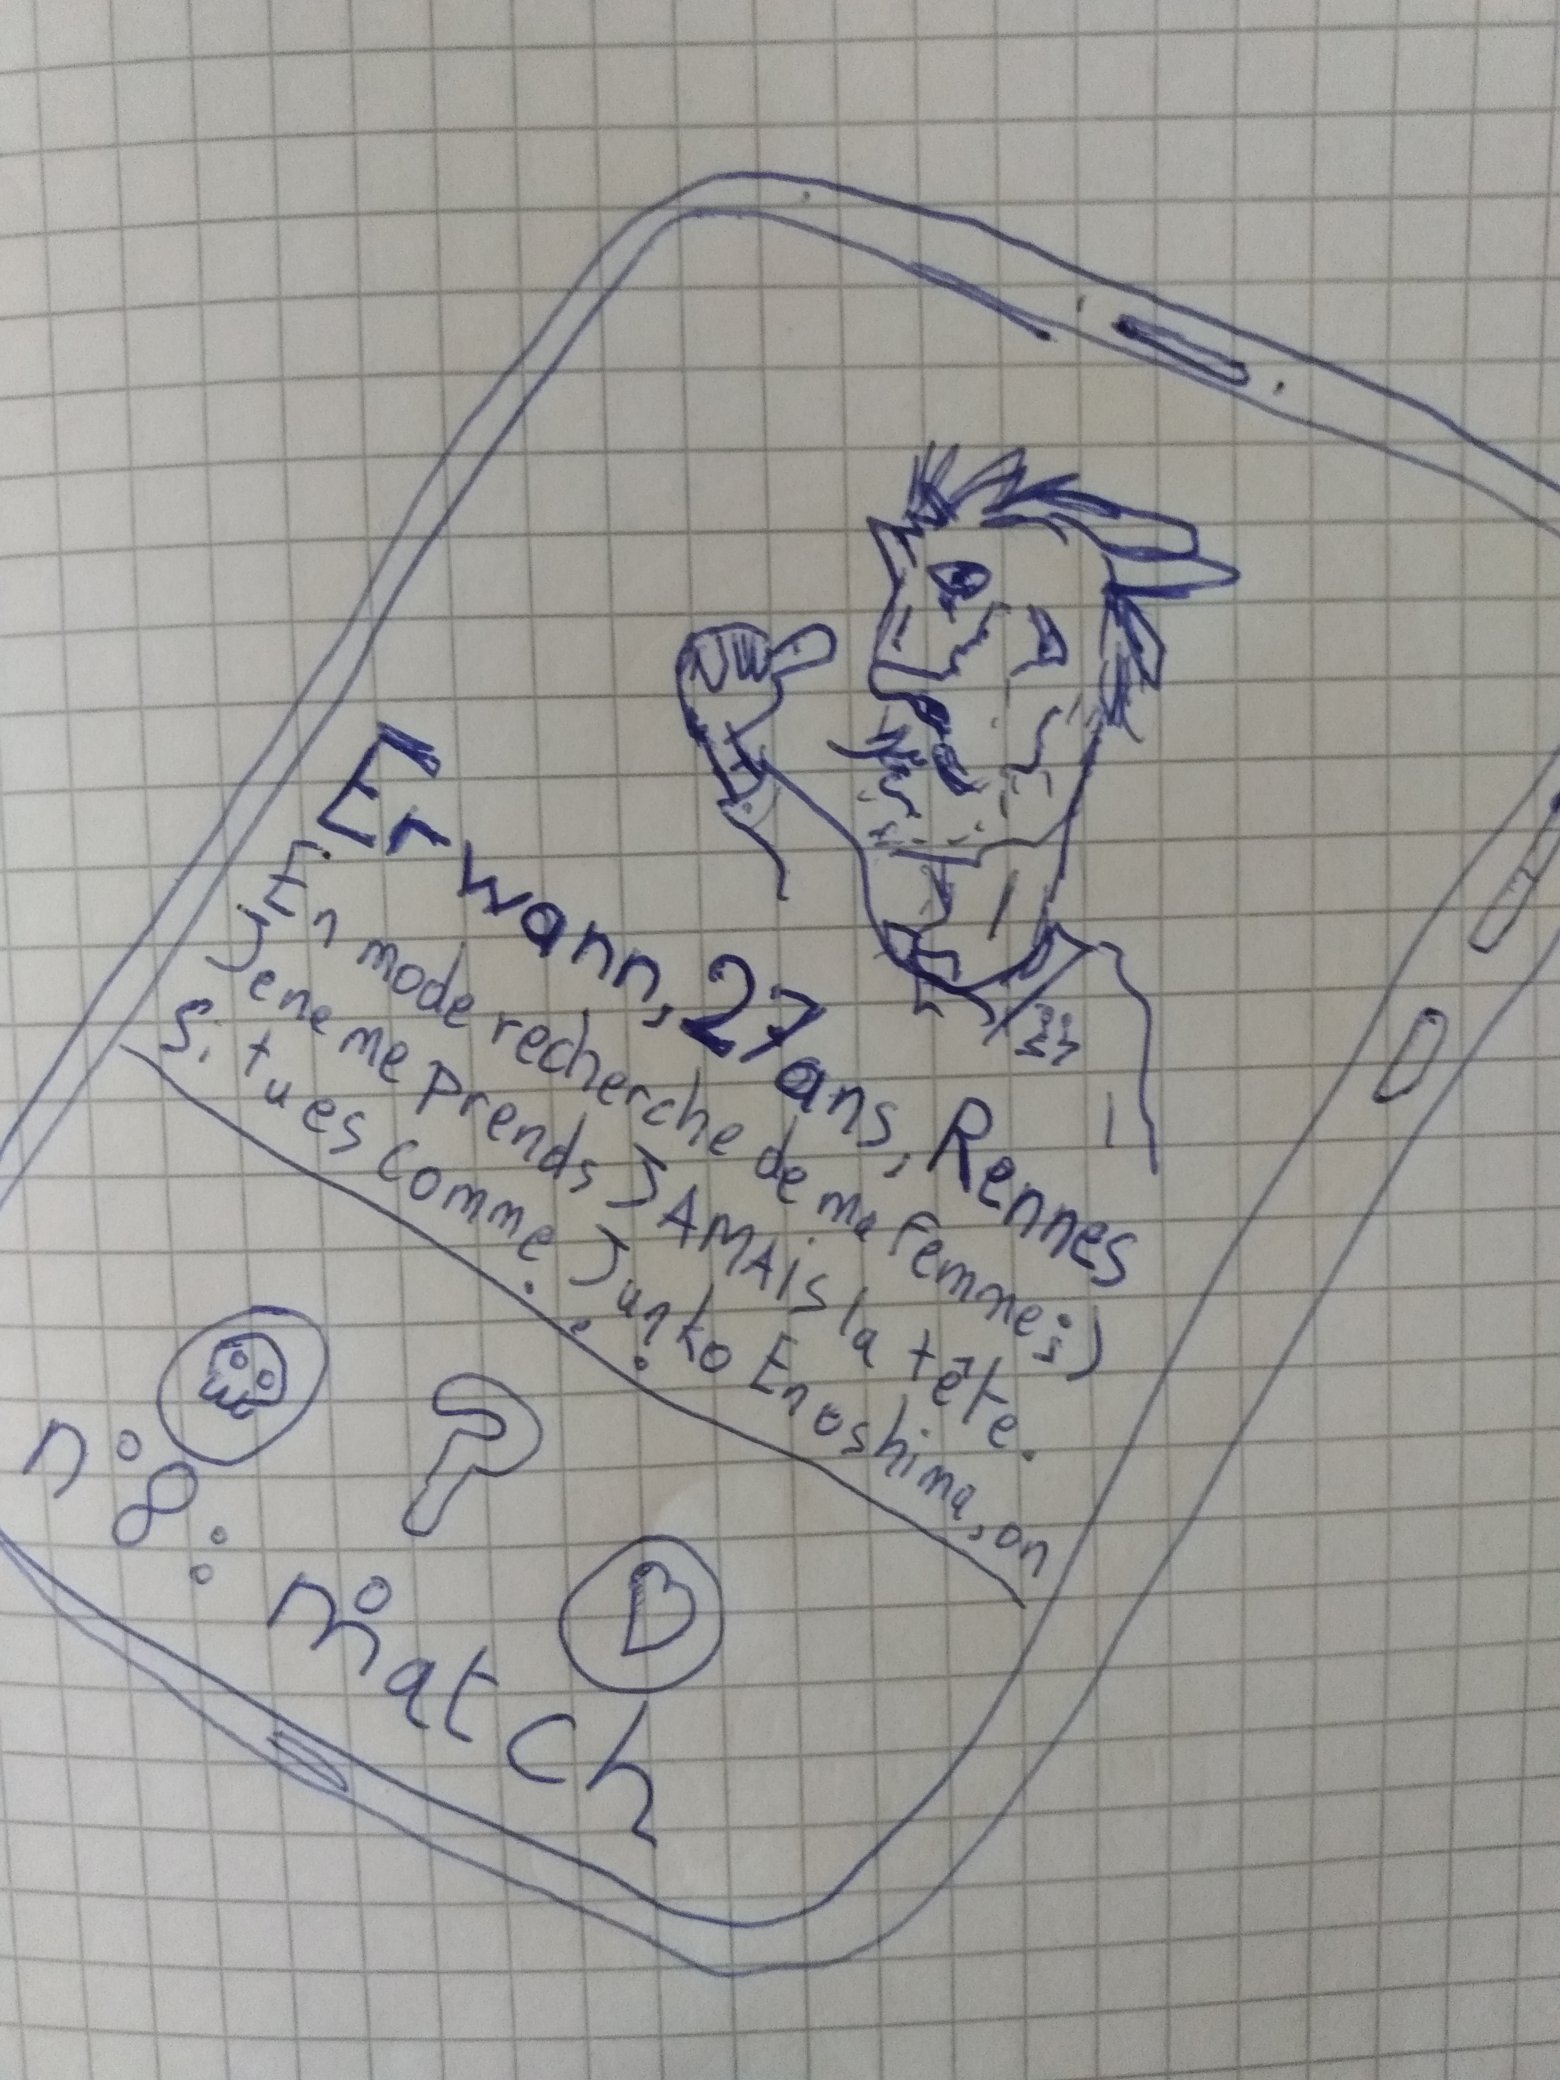 Erwann, 27 ans, Rennes
En mode recherche de ma femme ;)
Je ne me prends JAMAIS la tête.
Si tu es comme Junko Enoshima, on
match